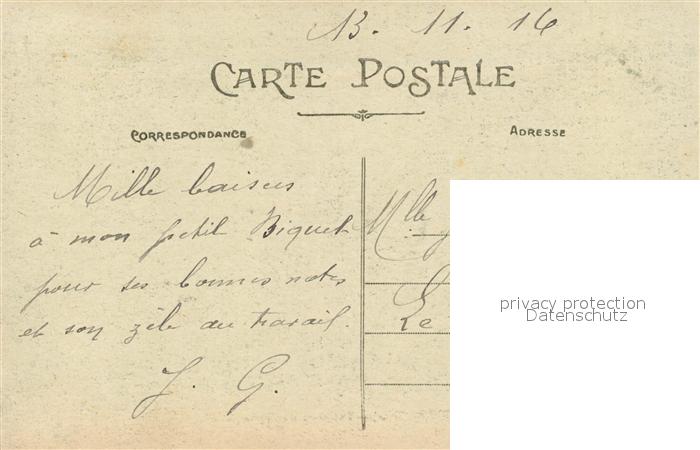 13. 11. 16
CARTE POSTALE
CORRESPONDANCE
ADRESSE
Mille baisers
à mon petit Biquet
pour ses bonnes notes
et son zèle au travail.
J. G.
Mlle
Le
privacy protection
Datenschutz